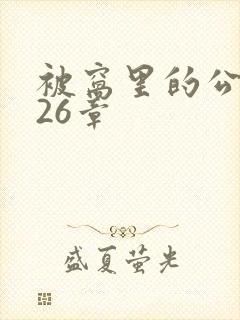 被窝里的公
26章
盛夏萤光